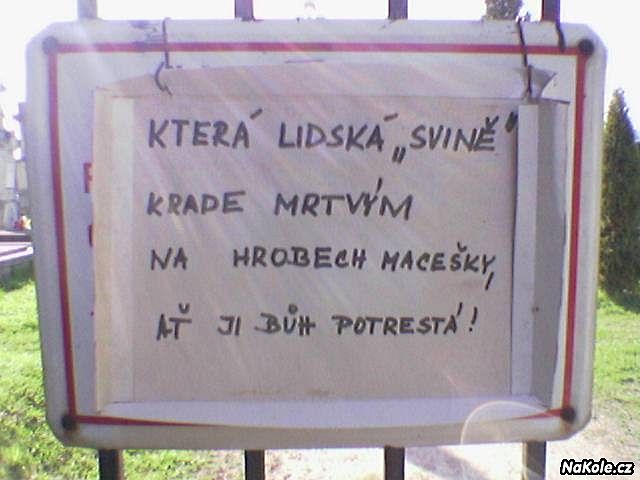 KTERÁ LIDSKÁ „SVINĚ"
KRADE MRTVÝM
NA HROBECH MACEŠKY,
AŤ JI BŮH POTRESTÁ!
NaKole.cz